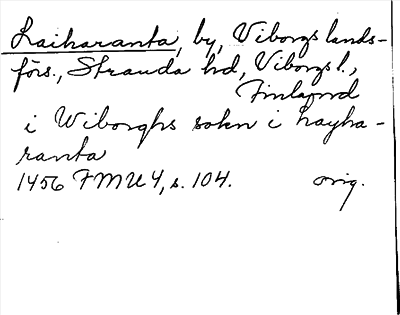 Laiharanta, by, Viborgs lands-
förs., Stranda hd, Viborgs l.,
Finland
i Wiborghs sokn i layha-
ranta
1456 FMU 4, s. 104. orig.